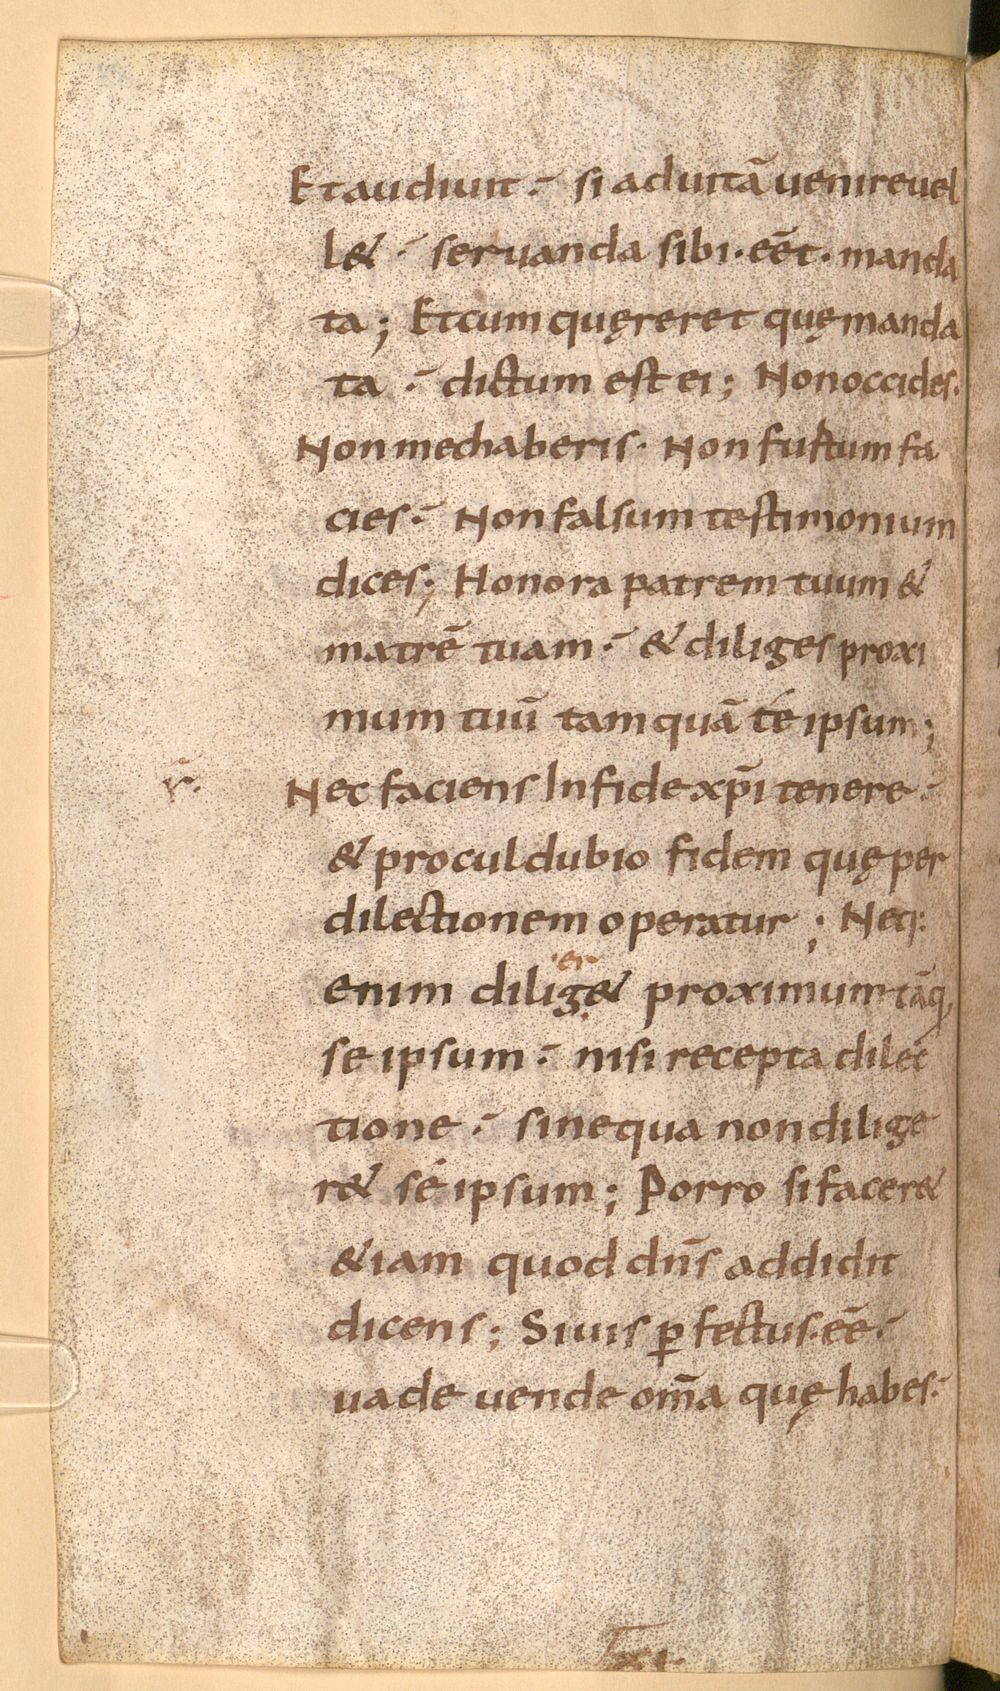 Et audiuit. si aduitā uenire uel
l& . seruanda sibi. eēt. manda
ta; Et cum quęreret quę manda
ta . dictum est ei; Non occides.
Non mechaberis. Non furtum fa
cies. Non falsum testimonium
dices; Honora patrem tuum &
matrē tuam. & diliges proxi
mum tuū tamquā té ipsum;
r̄. Nec faciens In fide xp̄i tenere.
& procul dubio fidem quę per
dilectionem operatur; Neq:
er
enim dilig& proximum tāq,
se ipsum. nisi recepta dilec
tione . sine qua non dilige
r& sé ipsum; Porro si facer&
&iam quod dn̄s addidit
dicens; Si uis ꝑfectus. eē.
uade uende om̄a quę habes.